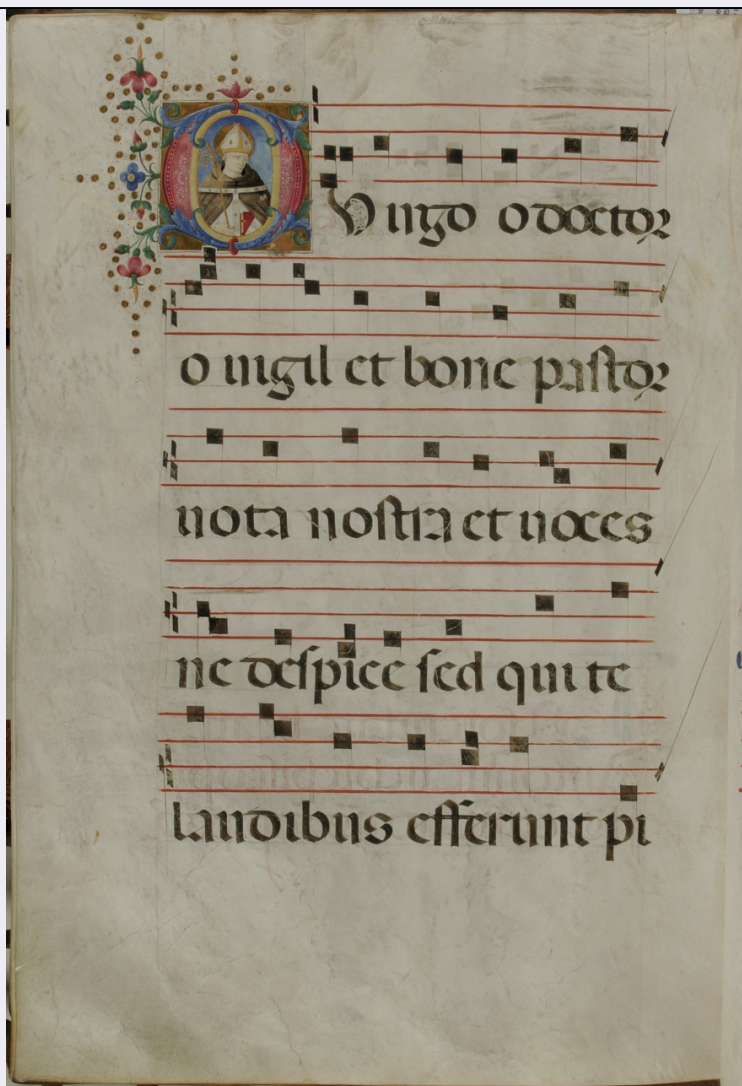 O Virgo o doctor
o uigil et bone pastor
uota nostra et uoces
ne despice sed qui te
laudibus efferunt pi